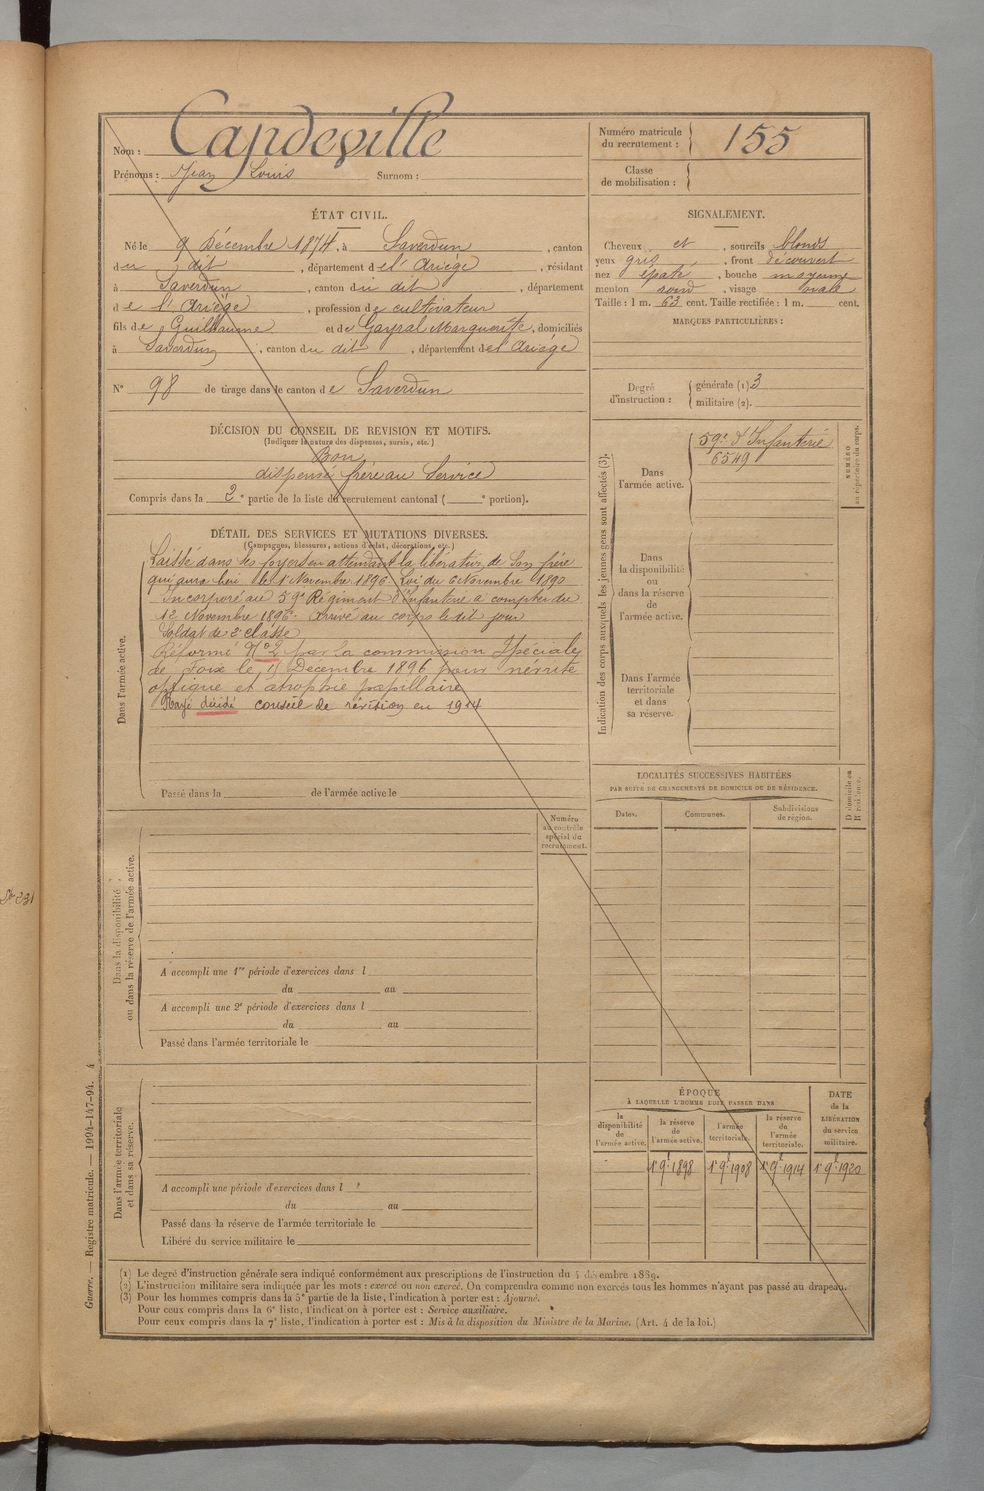 Nom : Capdeville
Prénoms : Jean Louis Surnom :
Numéro matricule du recrutement : 155
Classe de mobilisation :
ÉTAT CIVIL.
Né le 9 Décembre 1874, à Saverdun, canton
du dit, département de l'Ariège, résidant
à Saverdun, canton du dit, département
de l'Ariège, profession de cultivateur
fils de Guilhaume et de Gayral Marguerite, domiciliés
à Saverdun, canton du dit, département de l'Ariège
N° 98 de tirage dans le canton de Saverdun
SIGNALEMENT.
Cheveux et, sourcils blonds
yeux gris, front découvert
nez épaté, bouche moyenne
menton rond, visage ovale
Taille : 1 m. 63 cent. Taille rectifiée : 1 m. cent.
MARQUES PARTICULIÈRES :
Degré d'instruction :
générale (1) 3
militaire (2).
DÉCISION DU CONSEIL DE REVISION ET MOTIFS.
(Indiquer la nature des dispenses, sursis, etc.)
Bon
dispensé frère au Service
Compris dans la 2e partie de la liste du recrutement cantonal ( e portion).
DÉTAIL DES SERVICES ET MUTATIONS DIVERSES.
(Campagnes, blessures, actions d'éclat, décorations, etc.)
Dans l'armée active.
Laissé dans ses foyers en attendant la libération de son frère
qui aura lieu le 1 Novembre 1896. Loi du 6 Novembre 1890
Incorporé au 59e Régiment d'Infanterie à compter du
12 Novembre 1896. Arrivé au corps le dit jour
Soldat de 2e classe
Réformé N° 2 par la commission Spéciale
de Foix le 11 Décembre 1896 pour névrite
optique et atrophie papillaire
Rayé décidé conseil de révision en 1914
Passé dans la de l'armée active le
Indication des corps auxquels les jeunes gens sont affectés (3).
Dans l'armée active.
59e d'Infanterie
6549
NUMÉRO au répertoire du corps.
Dans la disponibilité ou dans la réserve de l'armée active.
Dans l'armée territoriale et dans sa réserve.
LOCALITÉS SUCCESSIVES HABITÉES
PAR SUITE DE CHANGEMENTS DE DOMICILE OU DE RÉSIDENCE.
Dates.
Communes.
Subdivisions de région.
D domicile ou R résidence.
Dans la disponibilité ou dans la réserve de l'armée active.
Numéro au contrôle spécial du recrutement.
A accompli une 1re période d'exercices dans l
du au
A accompli une 2e période d'exercices dans l
du au
Passé dans l'armée territoriale le
Dans l'armée territoriale et dans sa réserve.
A accompli une période d'exercices dans l
du au
Passé dans la réserve de l'armée territoriale le
Libéré du service militaire le
ÉPOQUE
À LAQUELLE L'HOMME DOIT PASSER DANS
la disponibilité de l'armée active.
la réserve de l'armée active.
l'armée territoriale.
la réserve de l'armée territoriale.
DATE de la LIBÉRATION du service militaire.
1er 9bre 1898
1er 9bre 1908
1er 9bre 1914
1er 9bre 1920
(1) Le degré d'instruction générale sera indiqué conformément aux prescriptions de l'instruction du 4 décembre 1889.
(2) L'instruction militaire sera indiquée par les mots : exercé ou non exercé. On comprendra comme non exercés tous les hommes n'ayant pas passé au drapeau.
(3) Pour les hommes compris dans la 5e partie de la liste, l'indication à porter est : Ajourné.
Pour ceux compris dans la 6e liste, l'indication à porter est : Service auxiliaire.
Pour ceux compris dans la 7e liste, l'indication à porter est : Mis à la disposition du Ministre de la Marine. (Art. 4 de la loi.)
Guerre. — Registre matricule. — 1994-147-94. 4